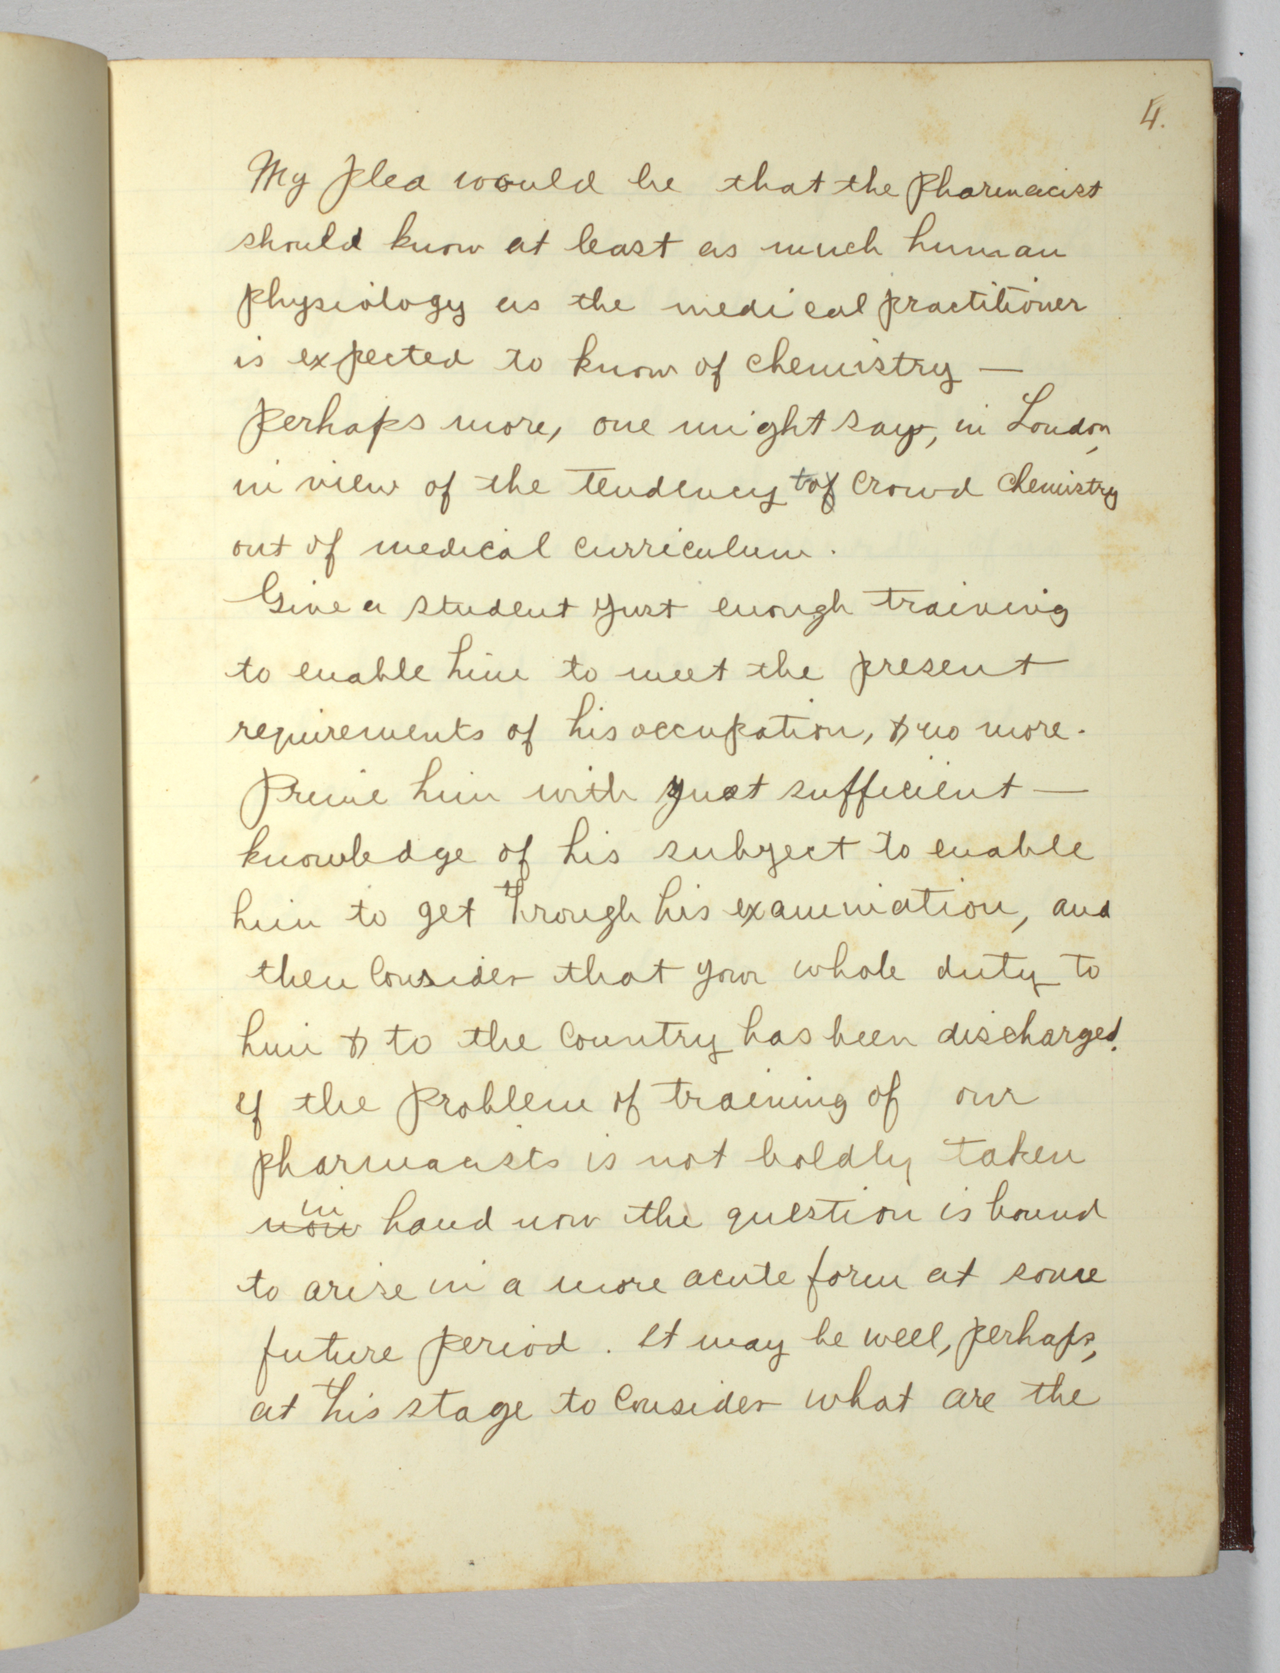 4.
My plea would be that the pharmacist
should know at least as much human
physiology as the medical practitioner
is expected to know of chemistry —
perhaps more, one might say, in London,
in view of the tendency to crowd chemistry
out of medical curriculum.
Give a student just enough training
to enable him to meet the present
requirements of his occupation, & no more.
Prime him with just sufficient —
knowledge of his subject to enable
him to get through his examination, and
then consider that your whole duty to
him & to the country has been discharged.
If the problem of training of our
pharmacists is not boldly taken
in
now hand now the question is bound
to arise in a more acute form at some
future period. It may be well, perhaps,
at this stage to consider what are the